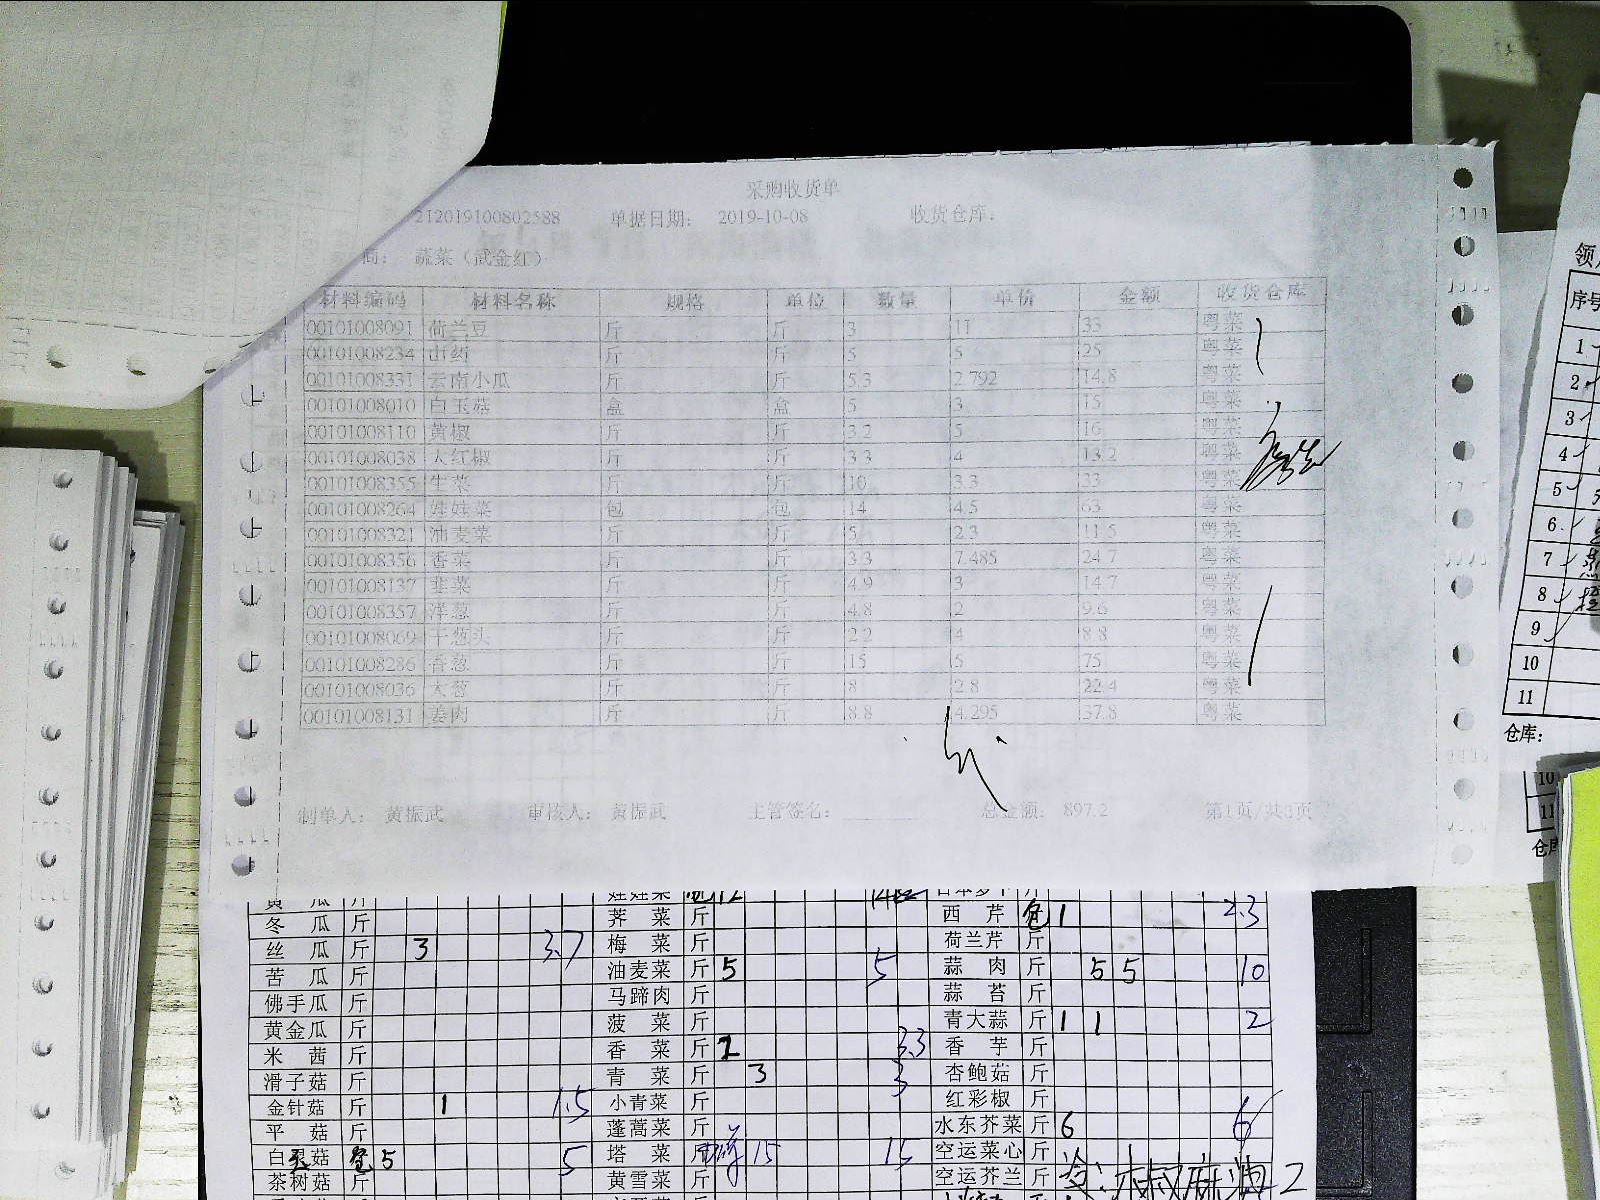 采购收货单
212019100802588 单据日期: 2019-10-08 收货仓库:
商: 蔬菜（武金红）
材料编码 材料名称 规格 单位 数量 单价 金额 收货仓库
00101008091 荷兰豆 斤 斤 3 11 33 粤菜
00101008234 山药 斤 斤 5 5 25 粤菜
00101008331 云南小瓜 斤 斤 5.3 2.792 14.8 粤菜
00101008010 白玉菇 盒 盒 5 3 15 粤菜
00101008110 黄椒 斤 斤 3.2 5 16 粤菜
00101008038 大红椒 斤 斤 3.3 4 13.2 粤菜
00101008355 生菜 斤 斤 10 3.3 33 粤菜
00101008264 娃娃菜 包 包 14 4.5 63 粤菜
00101008321 油麦菜 斤 斤 5 2.3 11.5 粤菜
00101008356 香菜 斤 斤 3.3 7.485 24.7 粤菜
00101008137 韭菜 斤 斤 4.9 3 14.7 粤菜
00101008357 洋葱 斤 斤 4.8 2 9.6 粤菜
00101008069 干葱头 斤 斤 2.2 4 8.8 粤菜
00101008286 香葱 斤 斤 15 5 75 粤菜
00101008036 大葱 斤 斤 8 2.8 22.4 粤菜
00101008131 姜肉 斤 斤 8.8 4.295 37.8 粤菜
制单人: 黄振武 审核人: 黄振武 主管签名: 总金额: 897.2 第1页/共3页
黄 瓜 斤 娃娃菜 12
冬 瓜 斤 荠 菜 斤 西 芹 包 1 2.3
丝 瓜 斤 3 3.7 梅 菜 斤 荷兰芹 斤
苦 瓜 斤 油麦菜 斤 5 5 蒜 肉 斤 5 5 10
佛手瓜 斤 马蹄肉 斤 蒜 苔 斤
黄金瓜 斤 菠 菜 斤 青大蒜 斤 1 1 2
米 茜 斤 香 菜 斤 3.3 香 芋 斤
滑子菇 斤 青 菜 斤 3 3 杏鲍菇 斤
金针菇 斤 1 1.5 小青菜 斤 红彩椒 斤
平 菇 斤 蓬蒿菜 斤 水东芥菜 斤 6 6
白灵菇 5 5 塔 菜 15 15 空运菜心 斤
茶树菇 斤 黄雪菜 斤 空运芥兰 斤
领
序号
1
2
3
4
5
6
7
8
9
10
11
仓库:
10
11